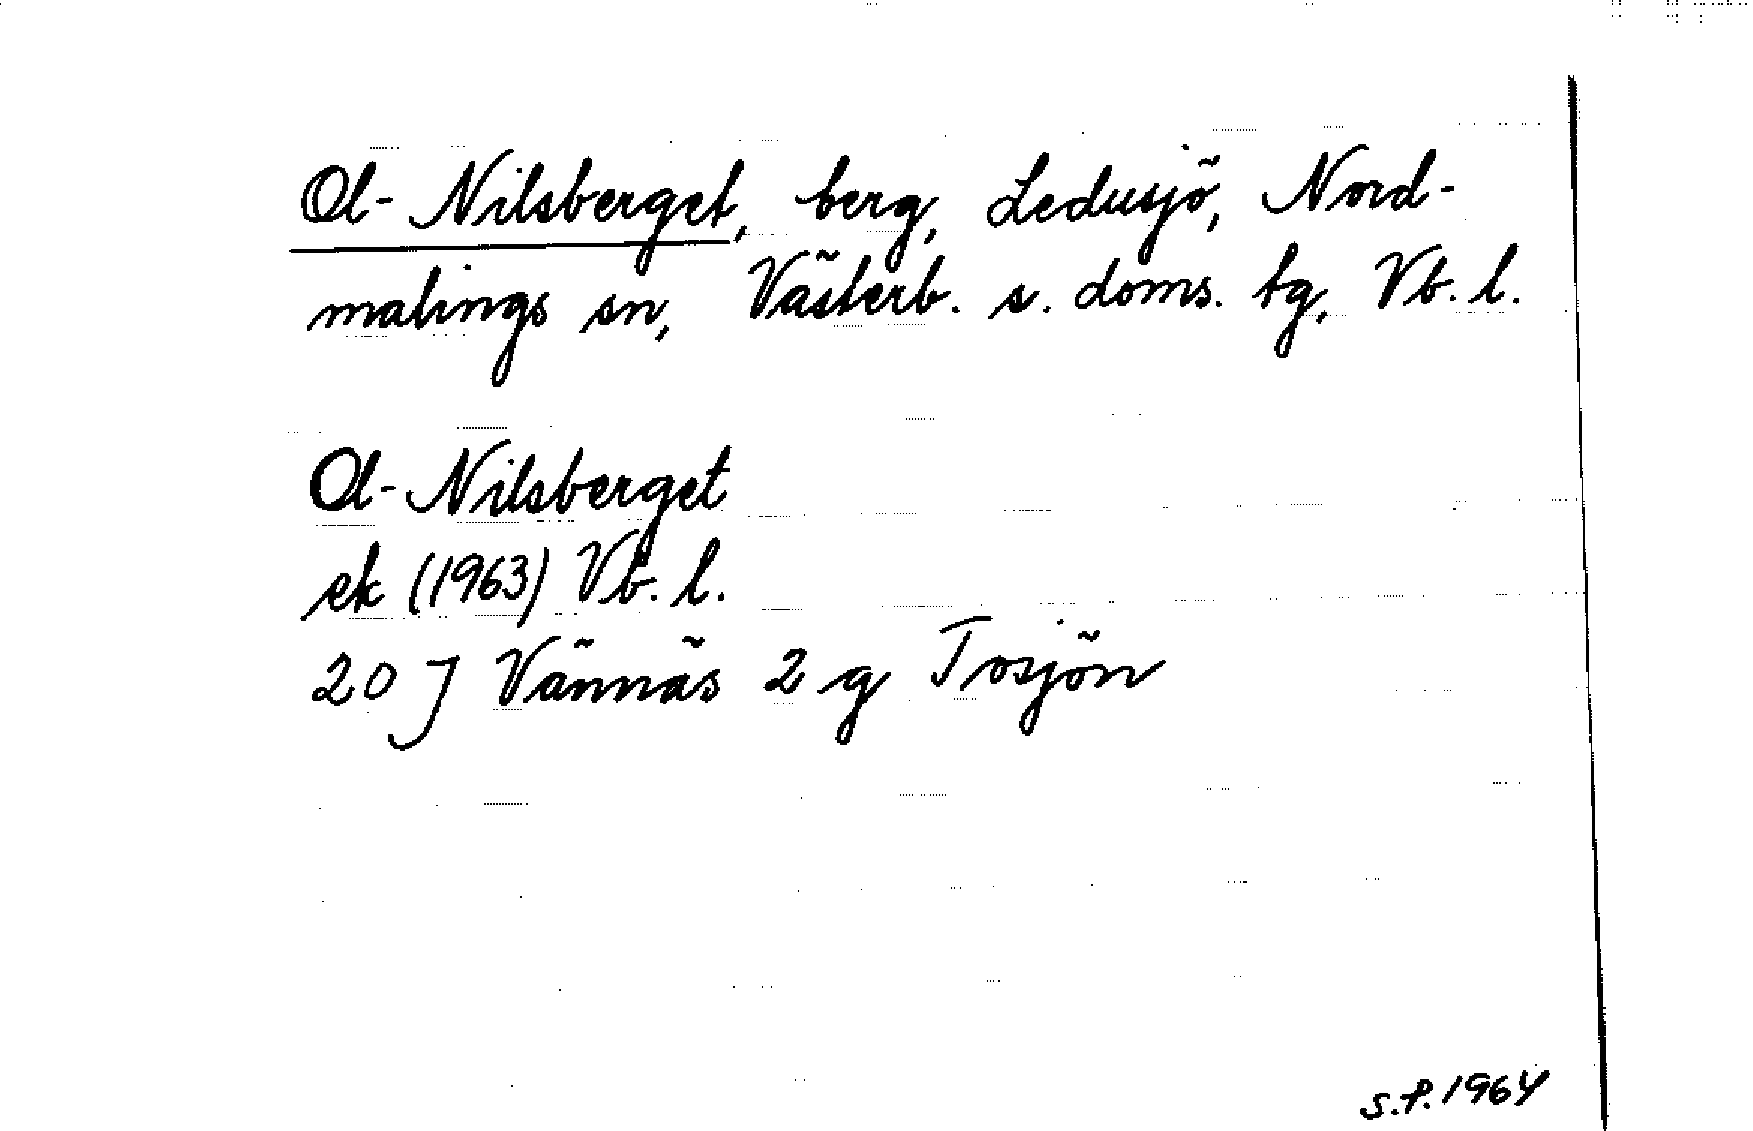 Ol-Nilsberget, berg, Ledusjö, Nord-
malings sn, Västerb. s. doms. tg, Vb. l.
Ol-Nilsberget
ek (1963) Vb. l.
20 J Vännäs 2 g Tosjön
S.P. 1964